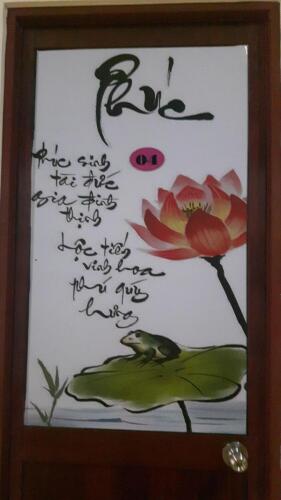 Phúc
04
Phúc sinh
tài đức
gia đình
thịnh
Lộc tiến
vinh hoa
phú quý
hưng